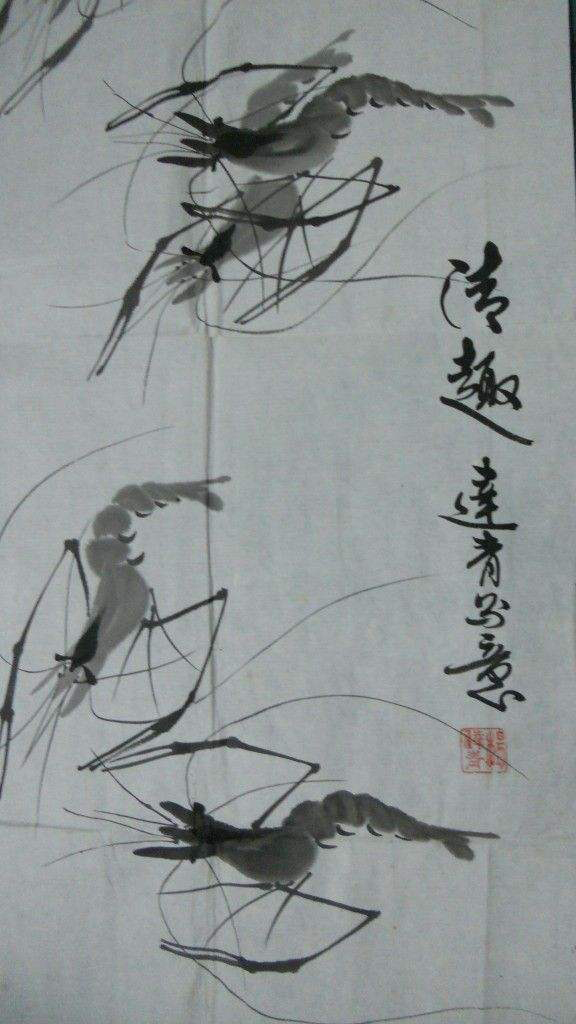 清趣
達青写意